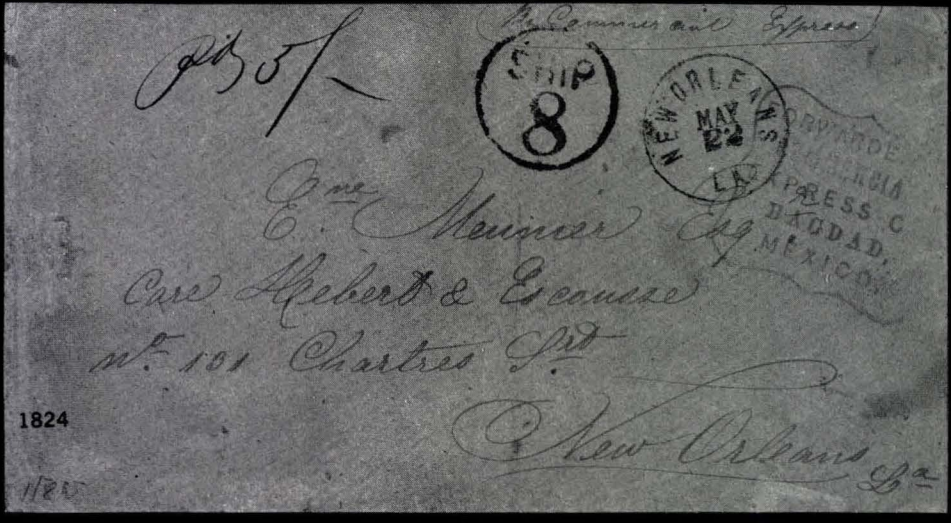 (By Commercial Express)
pd 5/-
SHIP
8
NEW ORLEANS
MAY
22
LA
FORWARDE
MERCIA
EXPRESS C
BAGDAD,
MEXICO
E.ne Meunier Esq
Care Hebert & Escousse
No. 101 Chartres Srt
New Orleans
La
1824